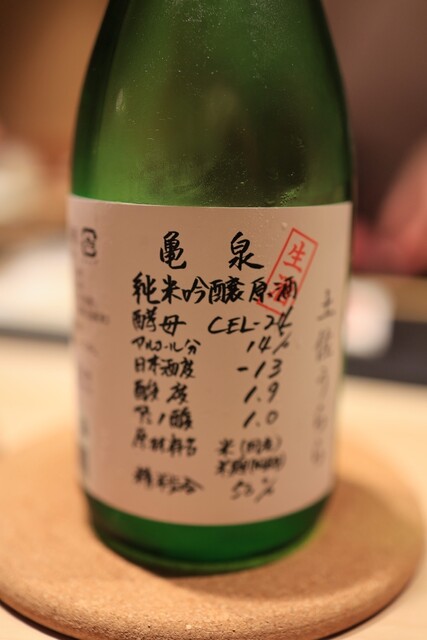 亀泉
生酒
純米吟醸原酒
酵母 CEL-24
アルコール分 14%
日本酒度 -13
酸度 1.9
アミノ酸 1.0
原材料名 米(国産)
精米歩合 50%
土佐うらら